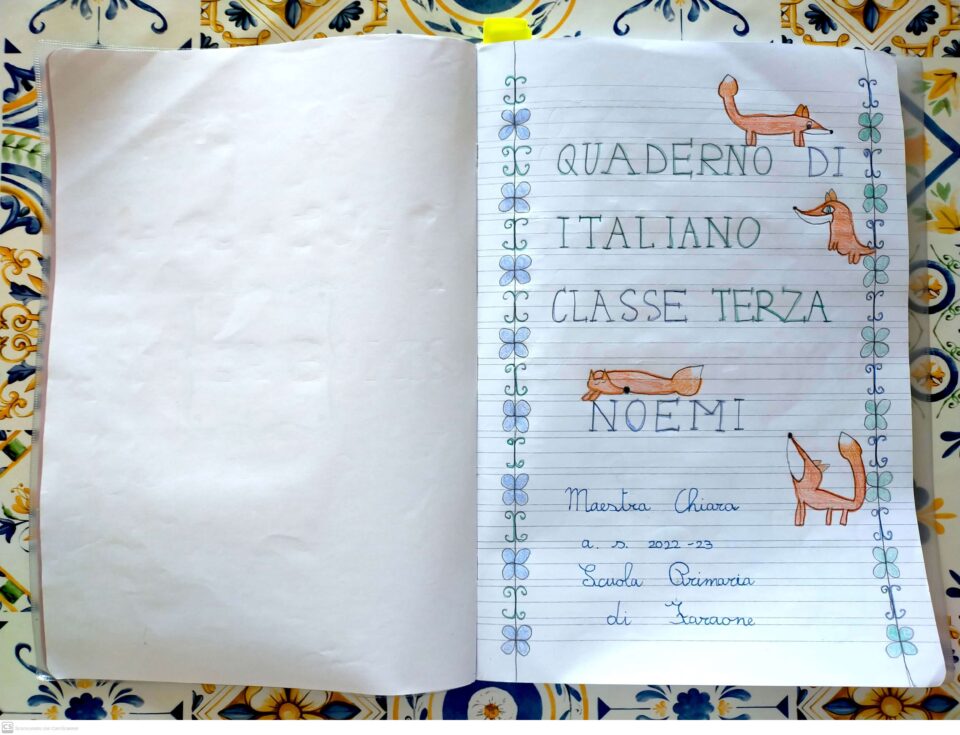 QUADERNO DI
ITALIANO
CLASSE TERZA
NOEMI
Maestra Chiara
a. s. 2022-23
Scuola Primaria
di Faraone
CS Scansionato con CamScanner